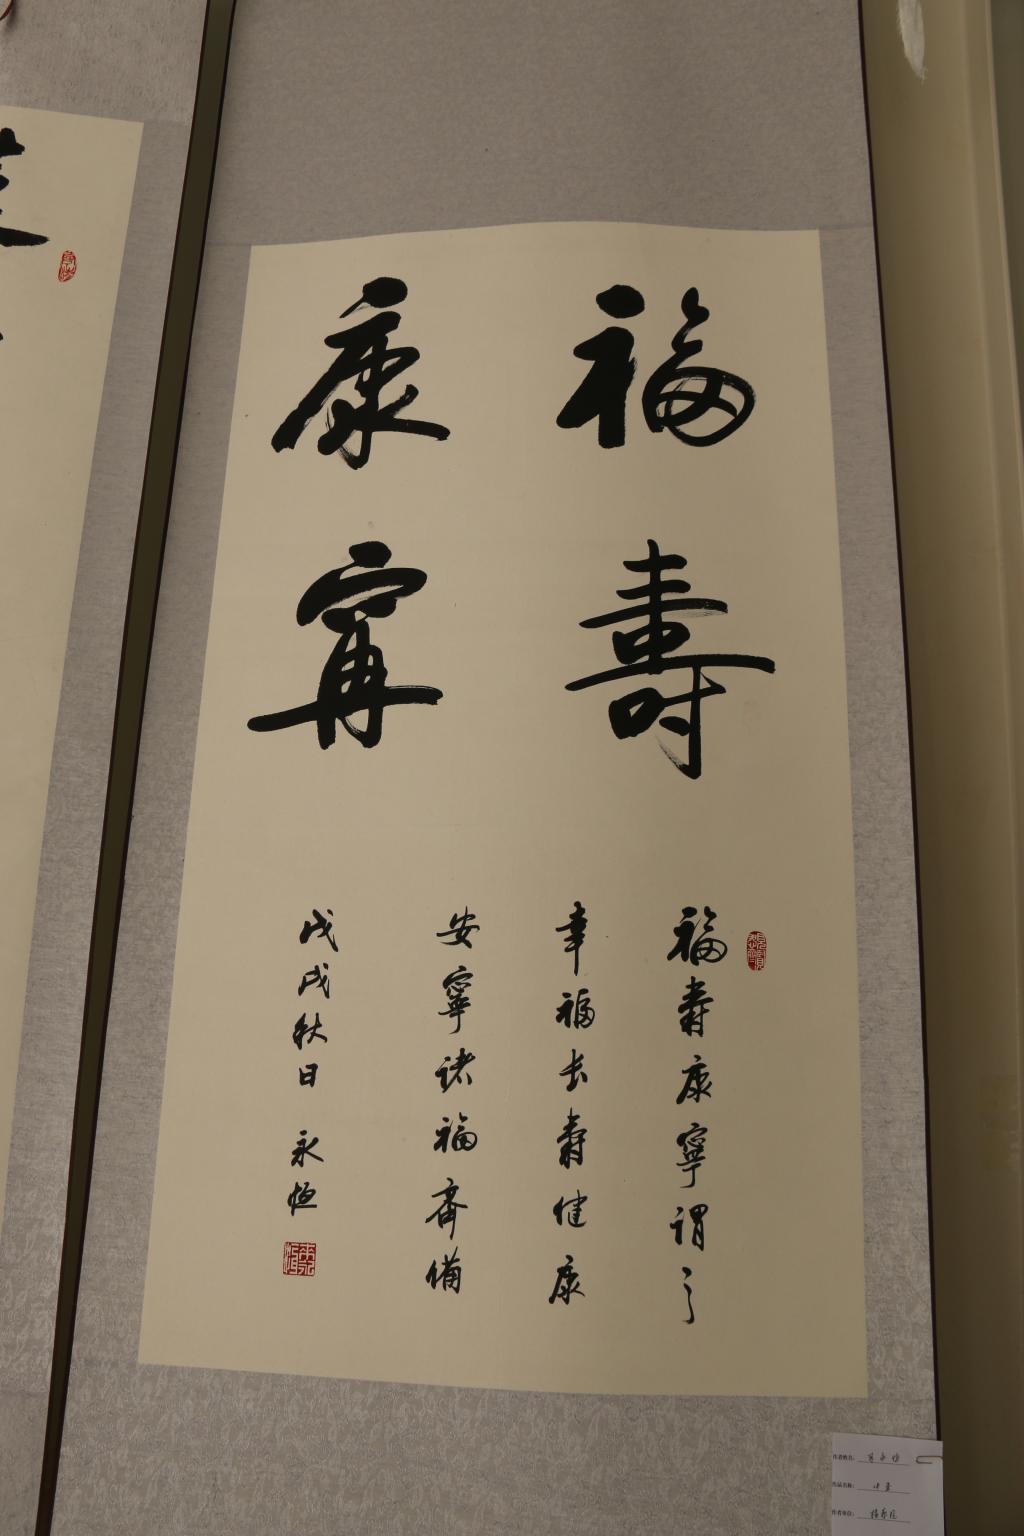 福壽
康寧
福壽康寧謂之
幸福长壽健康
安寧诸福齊備
戊戌秋日 永恒
作者姓名:
作品名称:
作者单位: